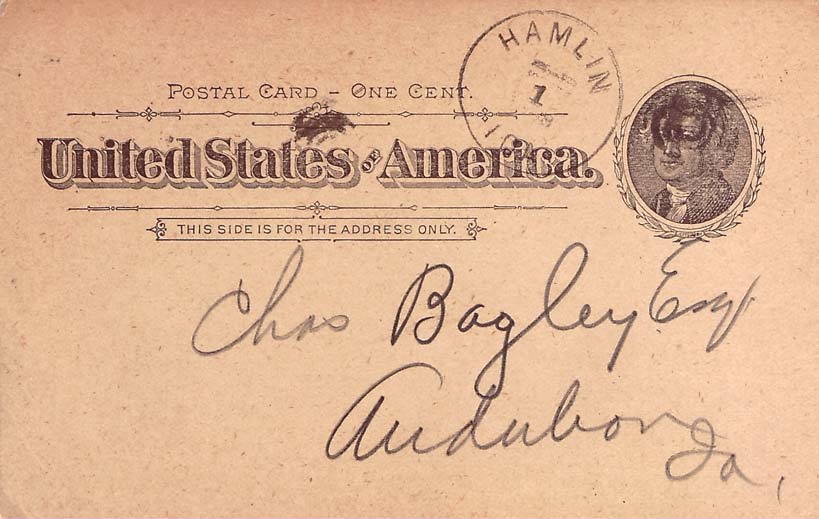 HAMLIN
1
POSTAL CARD - ONE CENT.
United States OF America.
THIS SIDE IS FOR THE ADDRESS ONLY.
Chas Bagley Esq
Audubon
Ia,